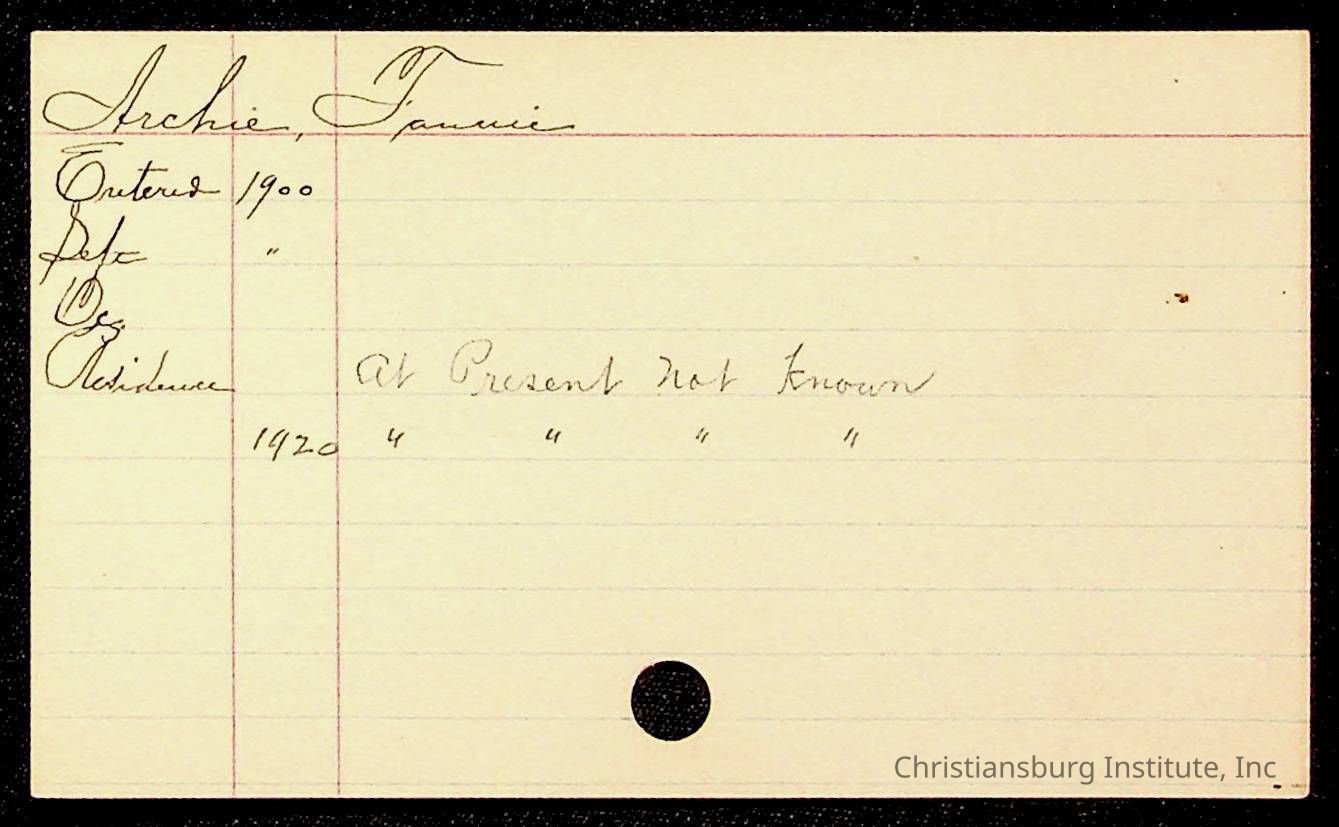 Archie, Fannie
Entered 1900
Left "
Oc.
Residence At Present Not Known
1920 " " " "
Christiansburg Institute, Inc